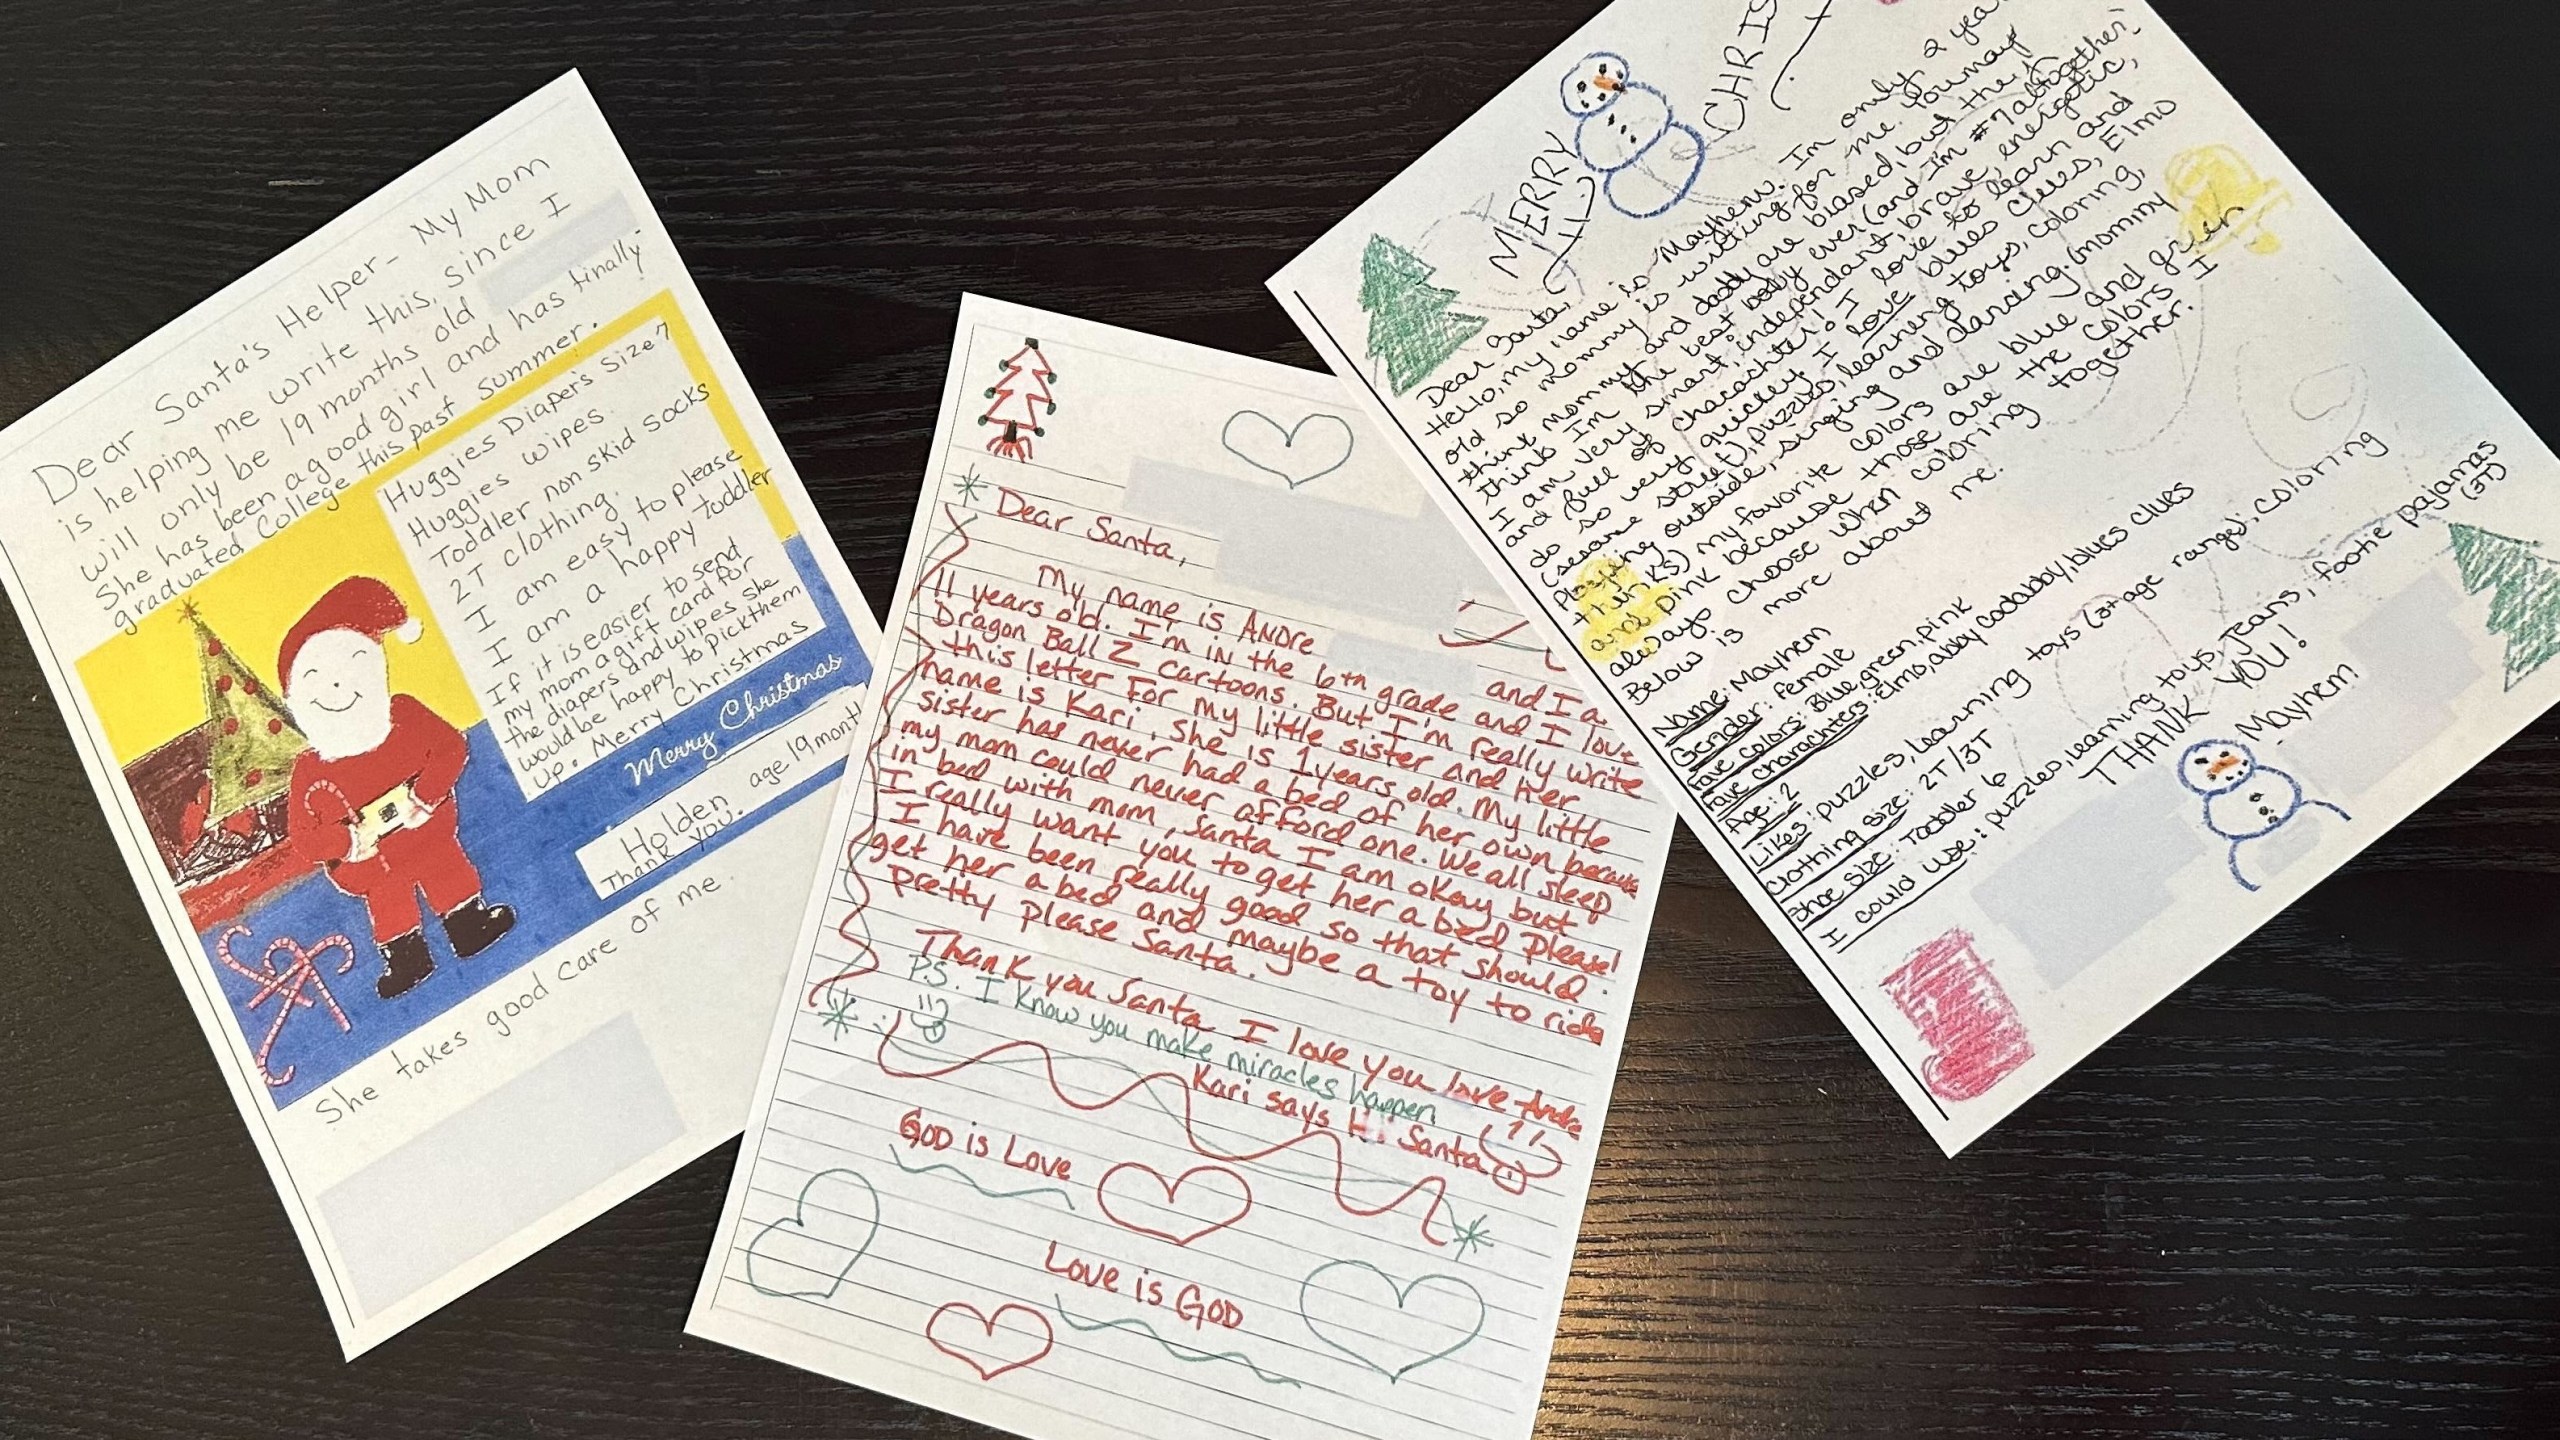 Dear Santa's Helper- My Mom
is helping me write this, since I
will only be 19 months old
She has been a good girl and has finally
graduated College this past summer.
Huggies Diaper's Size 7
Huggies wipes.
Toddler non skid socks
2T clothing.
I am easy to please
I am a happy toddler
If it is easier to send
my mom a gift card for
the diapers and wipes she
would be happy to pick them
up. Merry Christmas
Merry Christmas
Holden age 19 month
Thank you.
She takes good care of me.
Dear Santa,
My name is Andre and I a
11 years old. I'm in the 6th grade and I love
Dragon Ball Z cartoons. But I'm really write
this letter for my little sister and Her
name is Kari. She is 1 years old. My little
sister has never had a bed of her own because
my mom could never afford one. We all sleep
in bed with mom, Santa I am okay but
I really want you to get her a bed please!
I have been really good so that should
get her a bed and maybe a toy to ride.
Pretty please Santa.
Thank you Santa I love you love Andre
P.S. I know you make miracles happen
Kari says Hi Santa
God is Love
Love is God
MERRY CHRIS
Dear Santa,
Hello, my name is Mayhem. Im only 2 year
old so mommy is writing for me. You may
think mommy and daddy are biased, but they
think I'm the best baby ever (and I'm #7 altogether)
I am very smart, independant, brave, energetic,
and full of charachter! I love to learn and
do so very quickly. I love blues clues, Elmo
(sesame street), puzzles, learning toys, coloring,
playing outside, singing and dancing. (mommy
thinks) my favorite colors are blue and green
and pink because those are the colors I
always choose when coloring together.
Below is more about me.
Name: Mayhem
Gender: female
Fave colors: Blue, green, pink
Fave charachters: Elmo, abby cadabby, blues clues
Age: 2
Likes: puzzles, learning toys (3+ age range), coloring
Clothing size: 2T/3T
Shoe size: Toddler 6
I could use: puzzles, learning toys, jeans, footie pajamas
(3T)
THANK YOU!
Mayhem